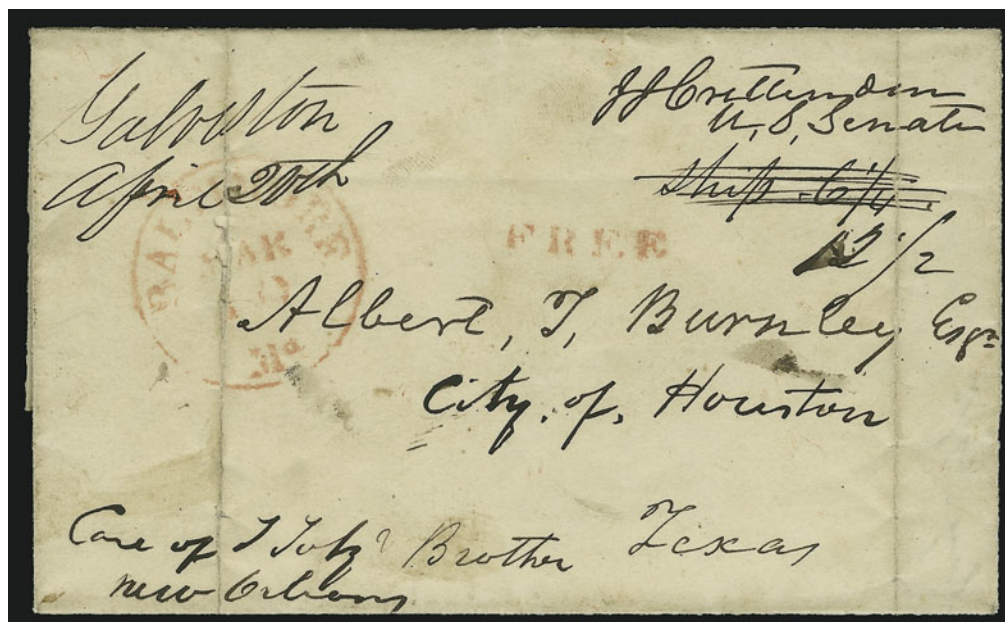 Galveston
April 20th
J J Crittenden
U. S. Senate
Ship. 6¼.
12½
BALTIMORE
MAR
Md
FREE
Albert, T, Burnley Esqr
City. of. Houston
Texas
Care of Brother
New Orleans